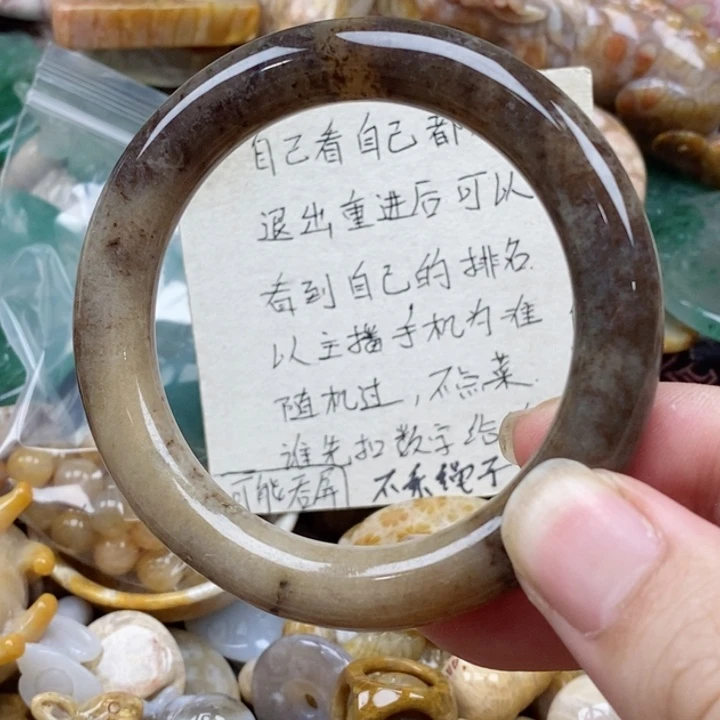 自己看自己都
退出重进后可以
看到自己的排名
以主播手机为准
随机过,不点菜.
谁先扣数字给
可能吞屏 不乘绳子